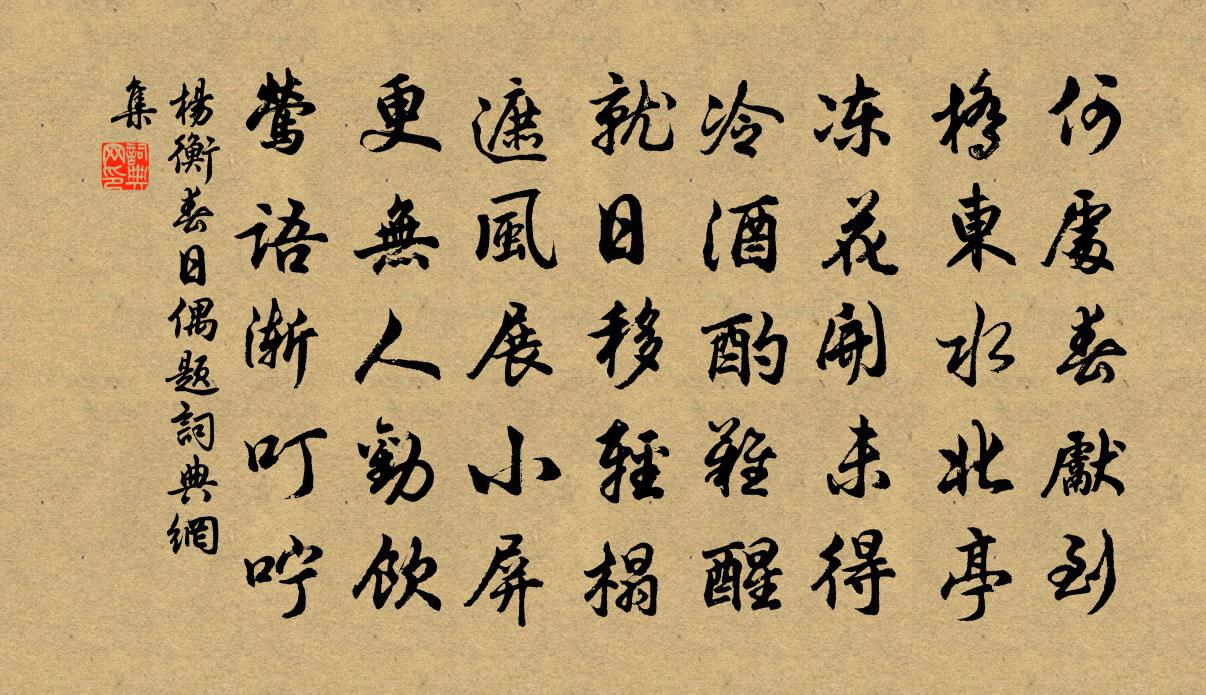 何處春獻到
橋東水北亭
凍花開未得
冷酒酌難醒
就日移輕榻
遮風展小屏
更無人勸飲
鶯語漸叮嚀
楊衡春日偶題詞典網
集
詞典
网印